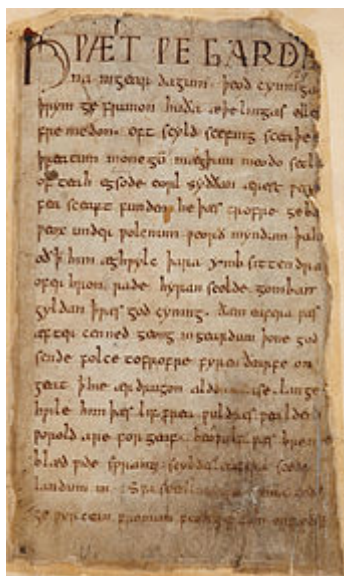 HǷÆT ǷE GARDE
na ingear dagum. þeod cyninga
þrym ge frunon huða æþelingas elle
fremedon. oft scyld scefing sceaþe
þreatum monegū mægþum meodo setla
of teah egsode eorl syððan ærest ƿear
fea sceaft funden he þæs frofre geba
ƿeox under ƿolcnum ƿeorð myndum þah
oð þ him æghƿylc þara ymb sittendra
ofer hron rade hyran scolde gomban
gyldan þ ƿæs god cyning. ðæm eafera ƿæs
æfter cenned geong ingeardum þone god
sende folce tofrofre fyren ðearfe on
geat þ hie ær drugon aldor ase. lange
hƿile him þæs lif frea ƿuldres ƿealdend
ƿorold are for geaf. beoƿulf ƿæs breme
blæd ƿide sprang scyldes eafera scede
landum in. Sƿa sceal
ge ƿyrcean fromum